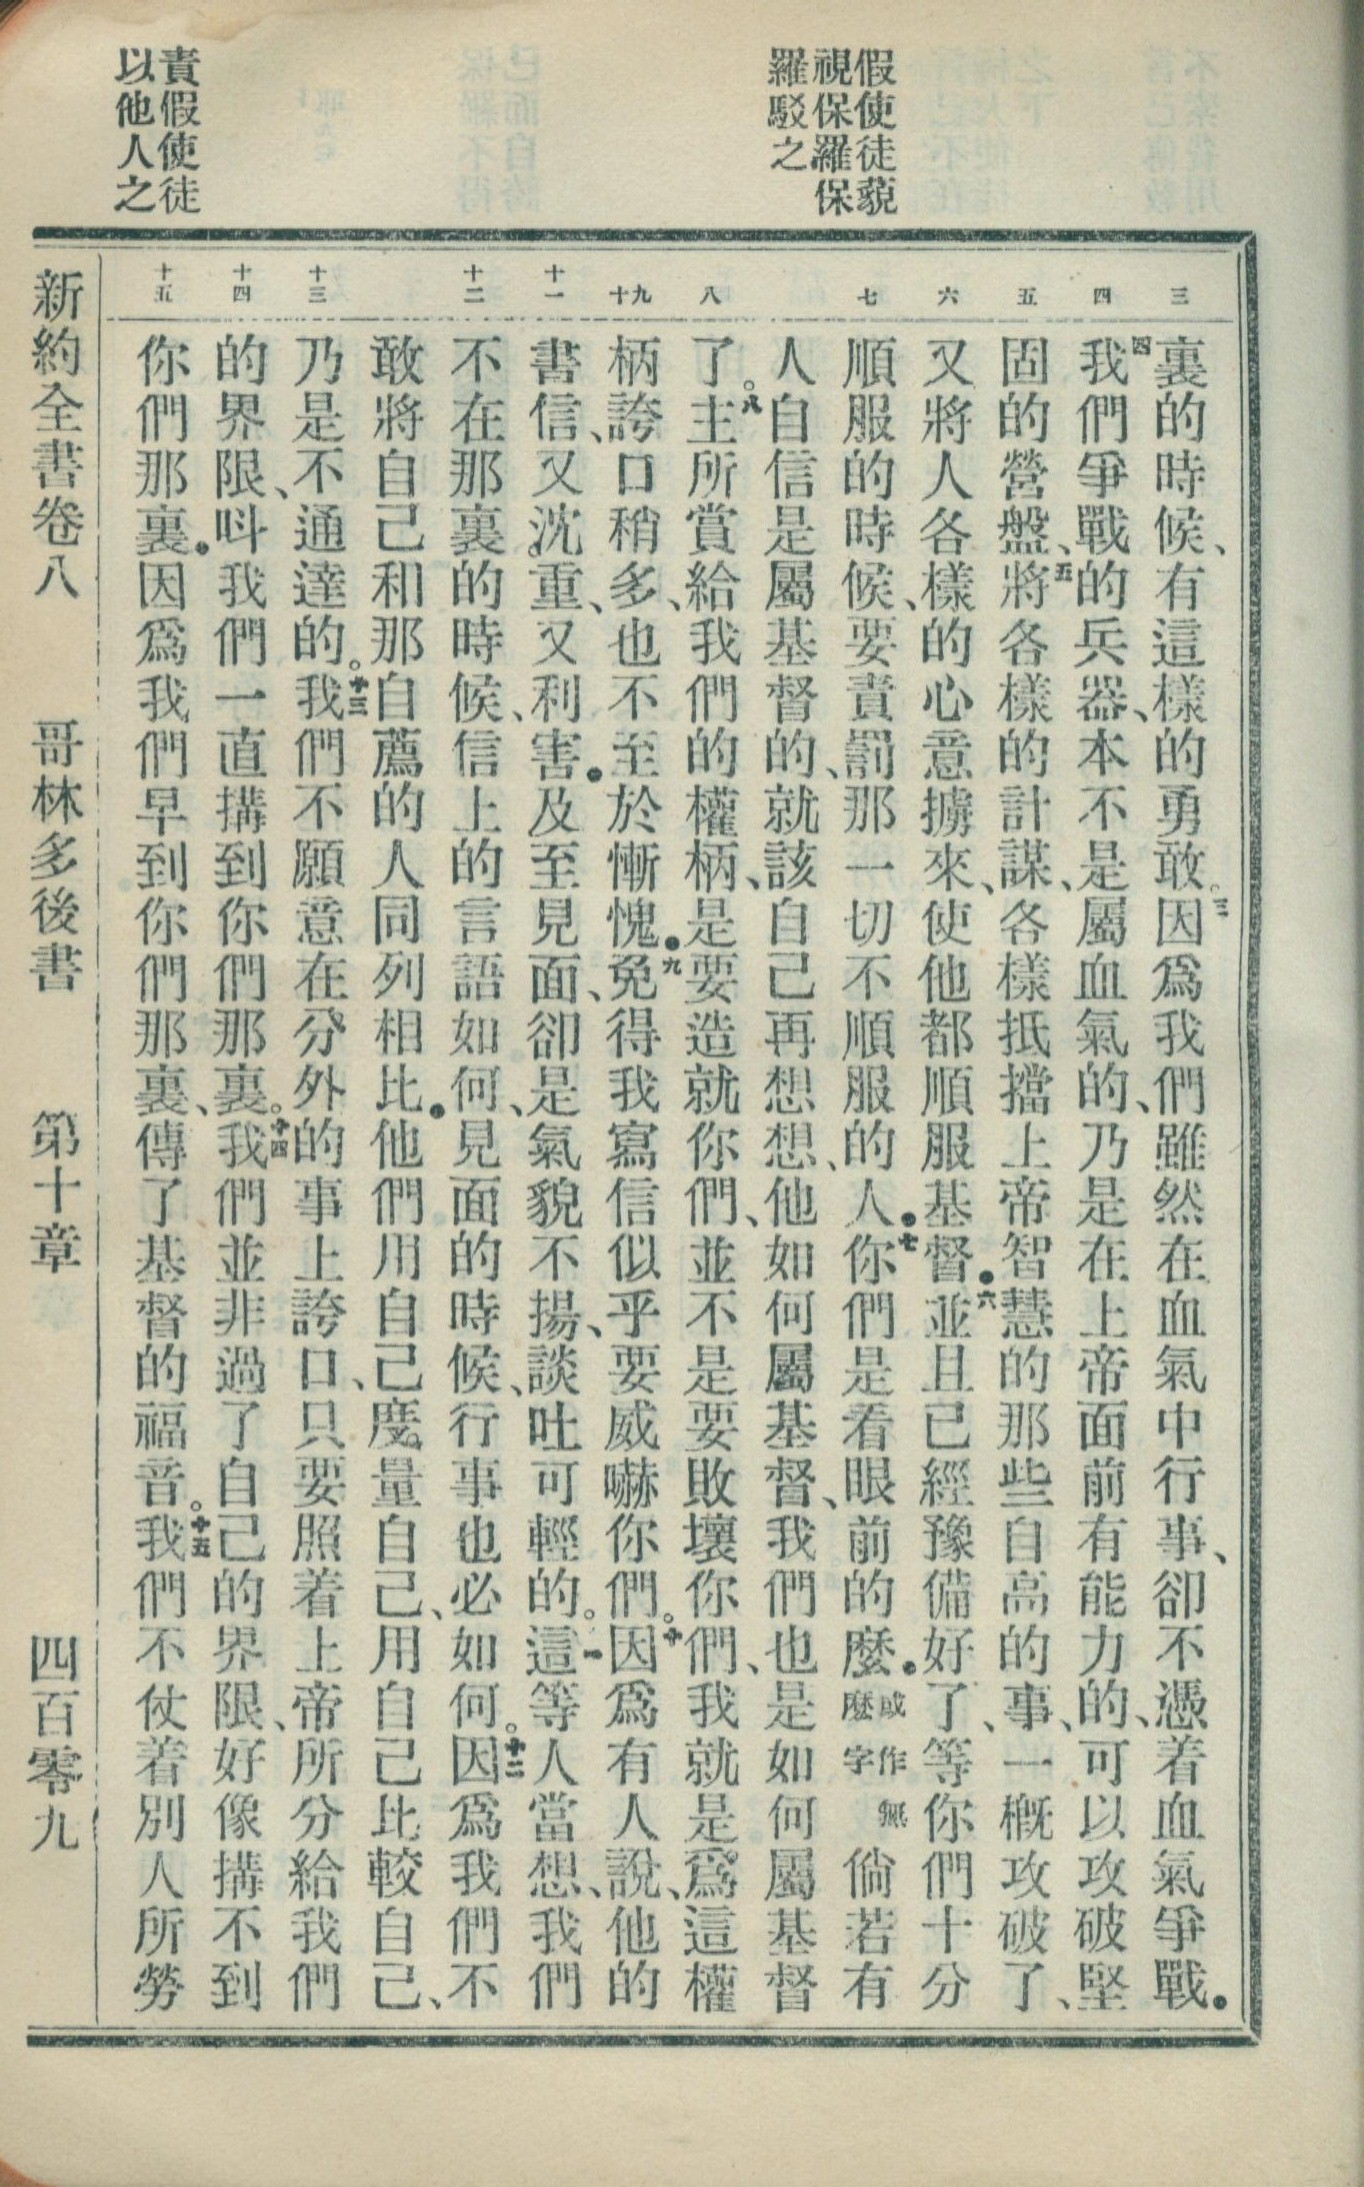 假使徒藐
視保羅保
羅駁之
責假使徒
以他人之
三
四
五
六
七
八
九十
十一
十二
十三
十四
十五
裏的時候、有這樣的勇敢。三因爲我們雖然在血氣中行事、卻不憑着血氣爭戰。
四我們爭戰的兵器、本不是屬血氣的、乃是在上帝面前有能力的、可以攻破堅
固的營盤、五將各樣的計謀、各樣抵擋上帝智慧的那些自高的事、一槪攻破了、
又將人各樣的心意擄來、使他都順服基督。六並且已經豫備好了、等你們十分
順服的時候、要責罰那一切不順服的人。七你們是看眼前的麼。或作無麼字倘若有
人自信是屬基督的、就該自己再想想、他如何屬基督、我們也是如何屬基督
了。八主所賞給我們的權柄、是要造就你們、並不是要敗壞你們、我就是爲這權
柄誇口稍多、也不至於慚愧。九免得我寫信似乎要威嚇你們。十因爲有人說、他的
書信、又沈重、又利害。及至見面、卻是氣貌不揚、談吐可輕的。十一這等人當想、我們
不在那裏的時候、信上的言語如何、見面的時候、行事也必如何。十二因爲我們不
敢將自己和那自薦的人同列相比。他們用自己度量自己、用自己比較自己、
乃是不通達的。十三我們不願意在分外的事上誇口、只要照着上帝所分給我們
的界限、呌我們一直搆到你們那裏。十四我們並非過了自己的界限、好像搆不到
你們那裏。因爲我們早到你們那裏、傳了基督的福音。十五我們不仗着別人所勞
新約全書卷八 哥林多後書 第十章 四百零九